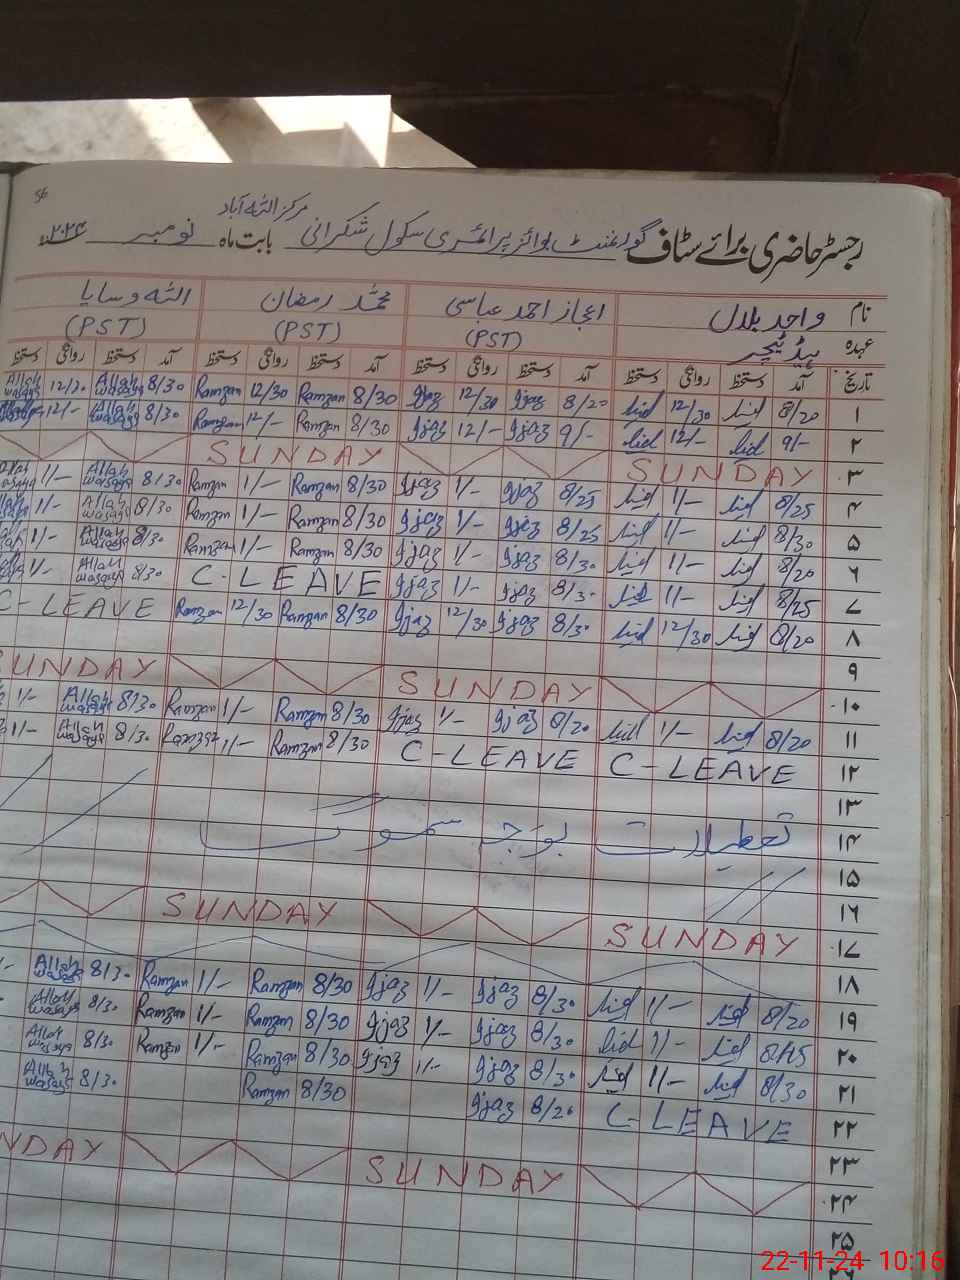 56
مرکز اللہ آباد
رجسٹر حاضری برائے سٹاف گورنمنٹ بوائز پرائمری سکول شکرانی بابت ماہ نومبر ۲۰۲۴ء
نام واحد بلال اعجاز احمد عباسی محمد رمضان اللہ وسایا
عہدہ ہیڈ ٹیچر (PST) (PST) (PST)
تاریخ آمد دستخط روانگی دستخط آمد دستخط روانگی دستخط آمد دستخط روانگی دستخط آمد دستخط روانگی دستخط
۱ 8/20 12/30 8/20 Ijaz 12/30 Ijaz 8/30 Ramzan 12/30 Ramzan 8/30 Allah wasaya 12/30 Allah wasaya
۲ 9/- 12/- 9/- Ijaz 12/- Ijaz 8/30 Ramzan 12/- Ramzan 8/30 Allah wasaya 12/-
۳ SUNDAY SUNDAY
۴ 8/25 1/- 8/25 Ijaz 1/- Ijaz 8/30 Ramzan 1/- Ramzan 8/30 Allah wasaya 1/-
۵ 8/30 1/- 8/25 Ijaz 1/- Ijaz 8/30 Ramzan 1/- Ramzan 8/30 Allah wasaya 1/-
۶ 8/20 1/- 8/30 Ijaz 1/- Ijaz 8/30 Ramzan 1/- Ramzan 8/30 Allah wasaya 1/-
۷ 8/25 1/- 8/30 Ijaz 1/- Ijaz C-LEAVE 8/30 Allah wasaya 1/-
۸ 8/20 12/30 8/30 Ijaz 12/30 Ijaz 8/30 Ramzan 12/30 Ramzan C-LEAVE
۹
۱۰ SUNDAY SUNDAY
۱۱ 8/20 1/- 8/20 Ijaz 1/- Ijaz 8/30 Ramzan 1/- Ramzan 8/30 Allah wasaya 1/-
۱۲ C-LEAVE C-LEAVE 8/30 Ramzan 1/- Ramzan 8/30 Allah wasaya 1/-
۱۳
۱۴ تعطیلات بوجہ سموگ
۱۵
۱۶
۱۷ SUNDAY SUNDAY
۱۸
۱۹ 8/20 1/- 8/30 Ijaz 1/- Ijaz 8/30 Ramzan 1/- Ramzan 8/30 Allah wasaya
۲۰ 1/- 8/30 Ijaz 1/- Ijaz 8/30 Ramzan 1/- Ramzan 8/30 Allah wasaya
۲۱ 8/30 1/- 8/30 Ijaz 1/- Ijaz 8/30 Ramzan 1/- Ramzan 8/30 Allah wasaya
۲۲ C-LEAVE 8/20 Ijaz 8/30 Ramzan 8/30 Allah wasaya
۲۳
۲۴ SUNDAY NDAY
۲۵
22-11-24 10:16